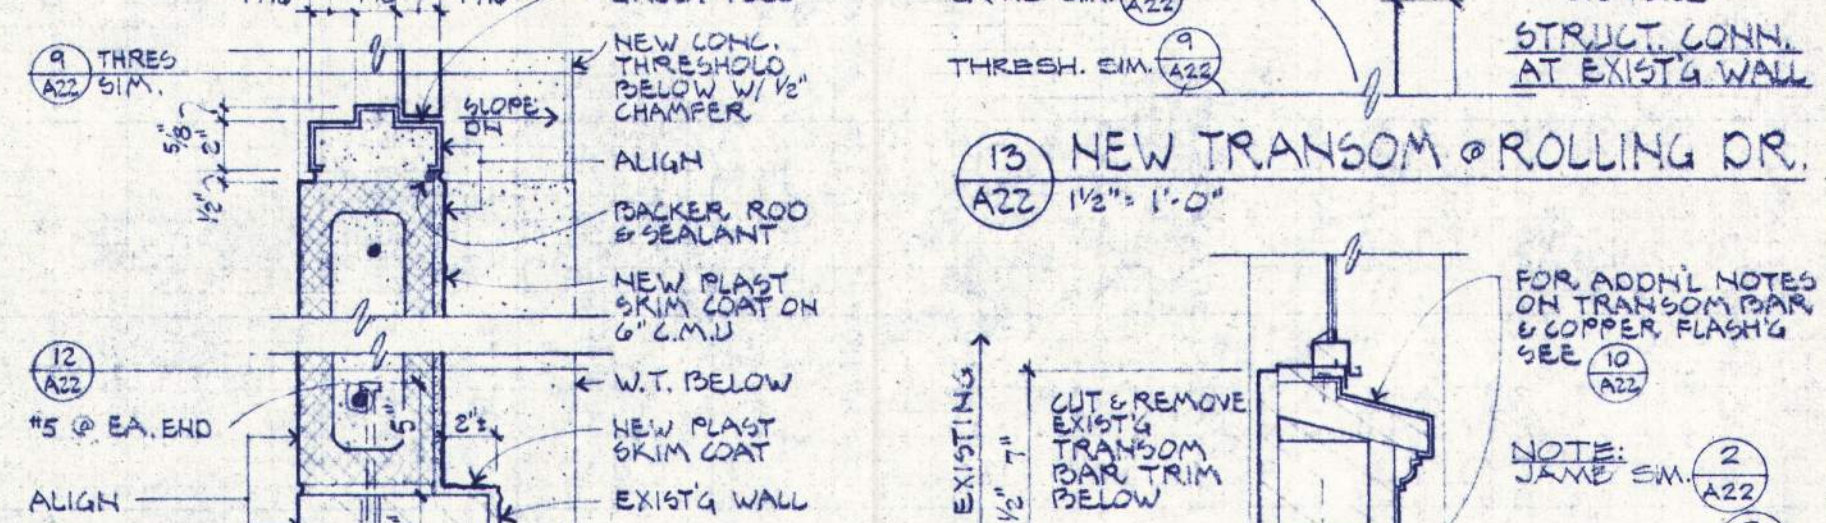 9
A22
THRES
SIM.
5/8"
2"
1/2"
SLOPE
DN
NEW CONC.
THRESHOLD
BELOW W/ 1/2"
CHAMFER
ALIGN
BACKER ROD
& SEALANT
NEW PLAST
SKIM COAT ON
6" C.M.U
12
A22
#5 @ EA. END
5"
2"±
W.T. BELOW
NEW PLAST
SKIM COAT
ALIGN
EXIST'G WALL
A22
THRESH. SIM.
9
A22
STRUCT. CONN.
AT EXIST'G WALL
13
A22
NEW TRANSOM @ ROLLING DR.
1 1/2" = 1'-0"
FOR ADDN'L NOTES
ON TRANSOM BAR
& COPPER FLASH'G
SEE
10
A22
EXISTING
7"
CUT & REMOVE
EXIST'G
TRANSOM
BAR TRIM
BELOW
NOTE:
JAMB SIM.
2
A22